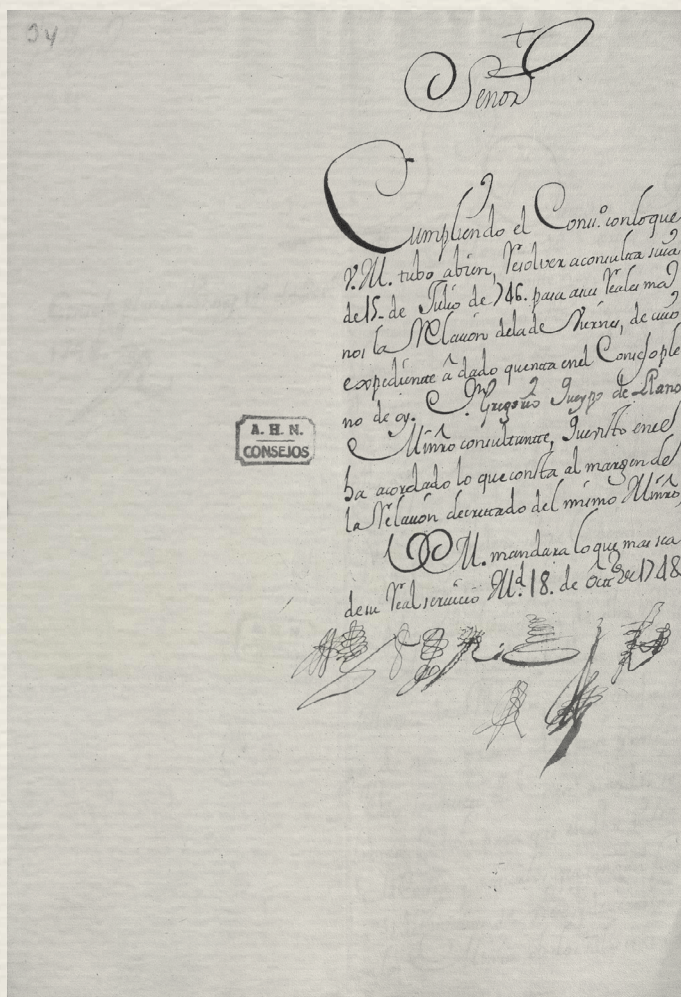 34
Señor
Cumpliendo el Cons.º con lo que
V. M. tubo abien, resolver a consulta suia
de 15. de Julio de 746. pasa a sus reales ma
nos la Relacion de la de Viernes, de cuio
expediente â dado quenta en el Consejo ple
no de oy. Dn Gregorio Queypo de Llano
Minro consultante, Que visto en el
ha acordado lo que consta al margen de
la Relacion decretado del mismo Minro,
V. M. mandara lo que mas sea
de su Real servicio Md. 18. de Octre de 1748
A. H. N.
CONSEJOS